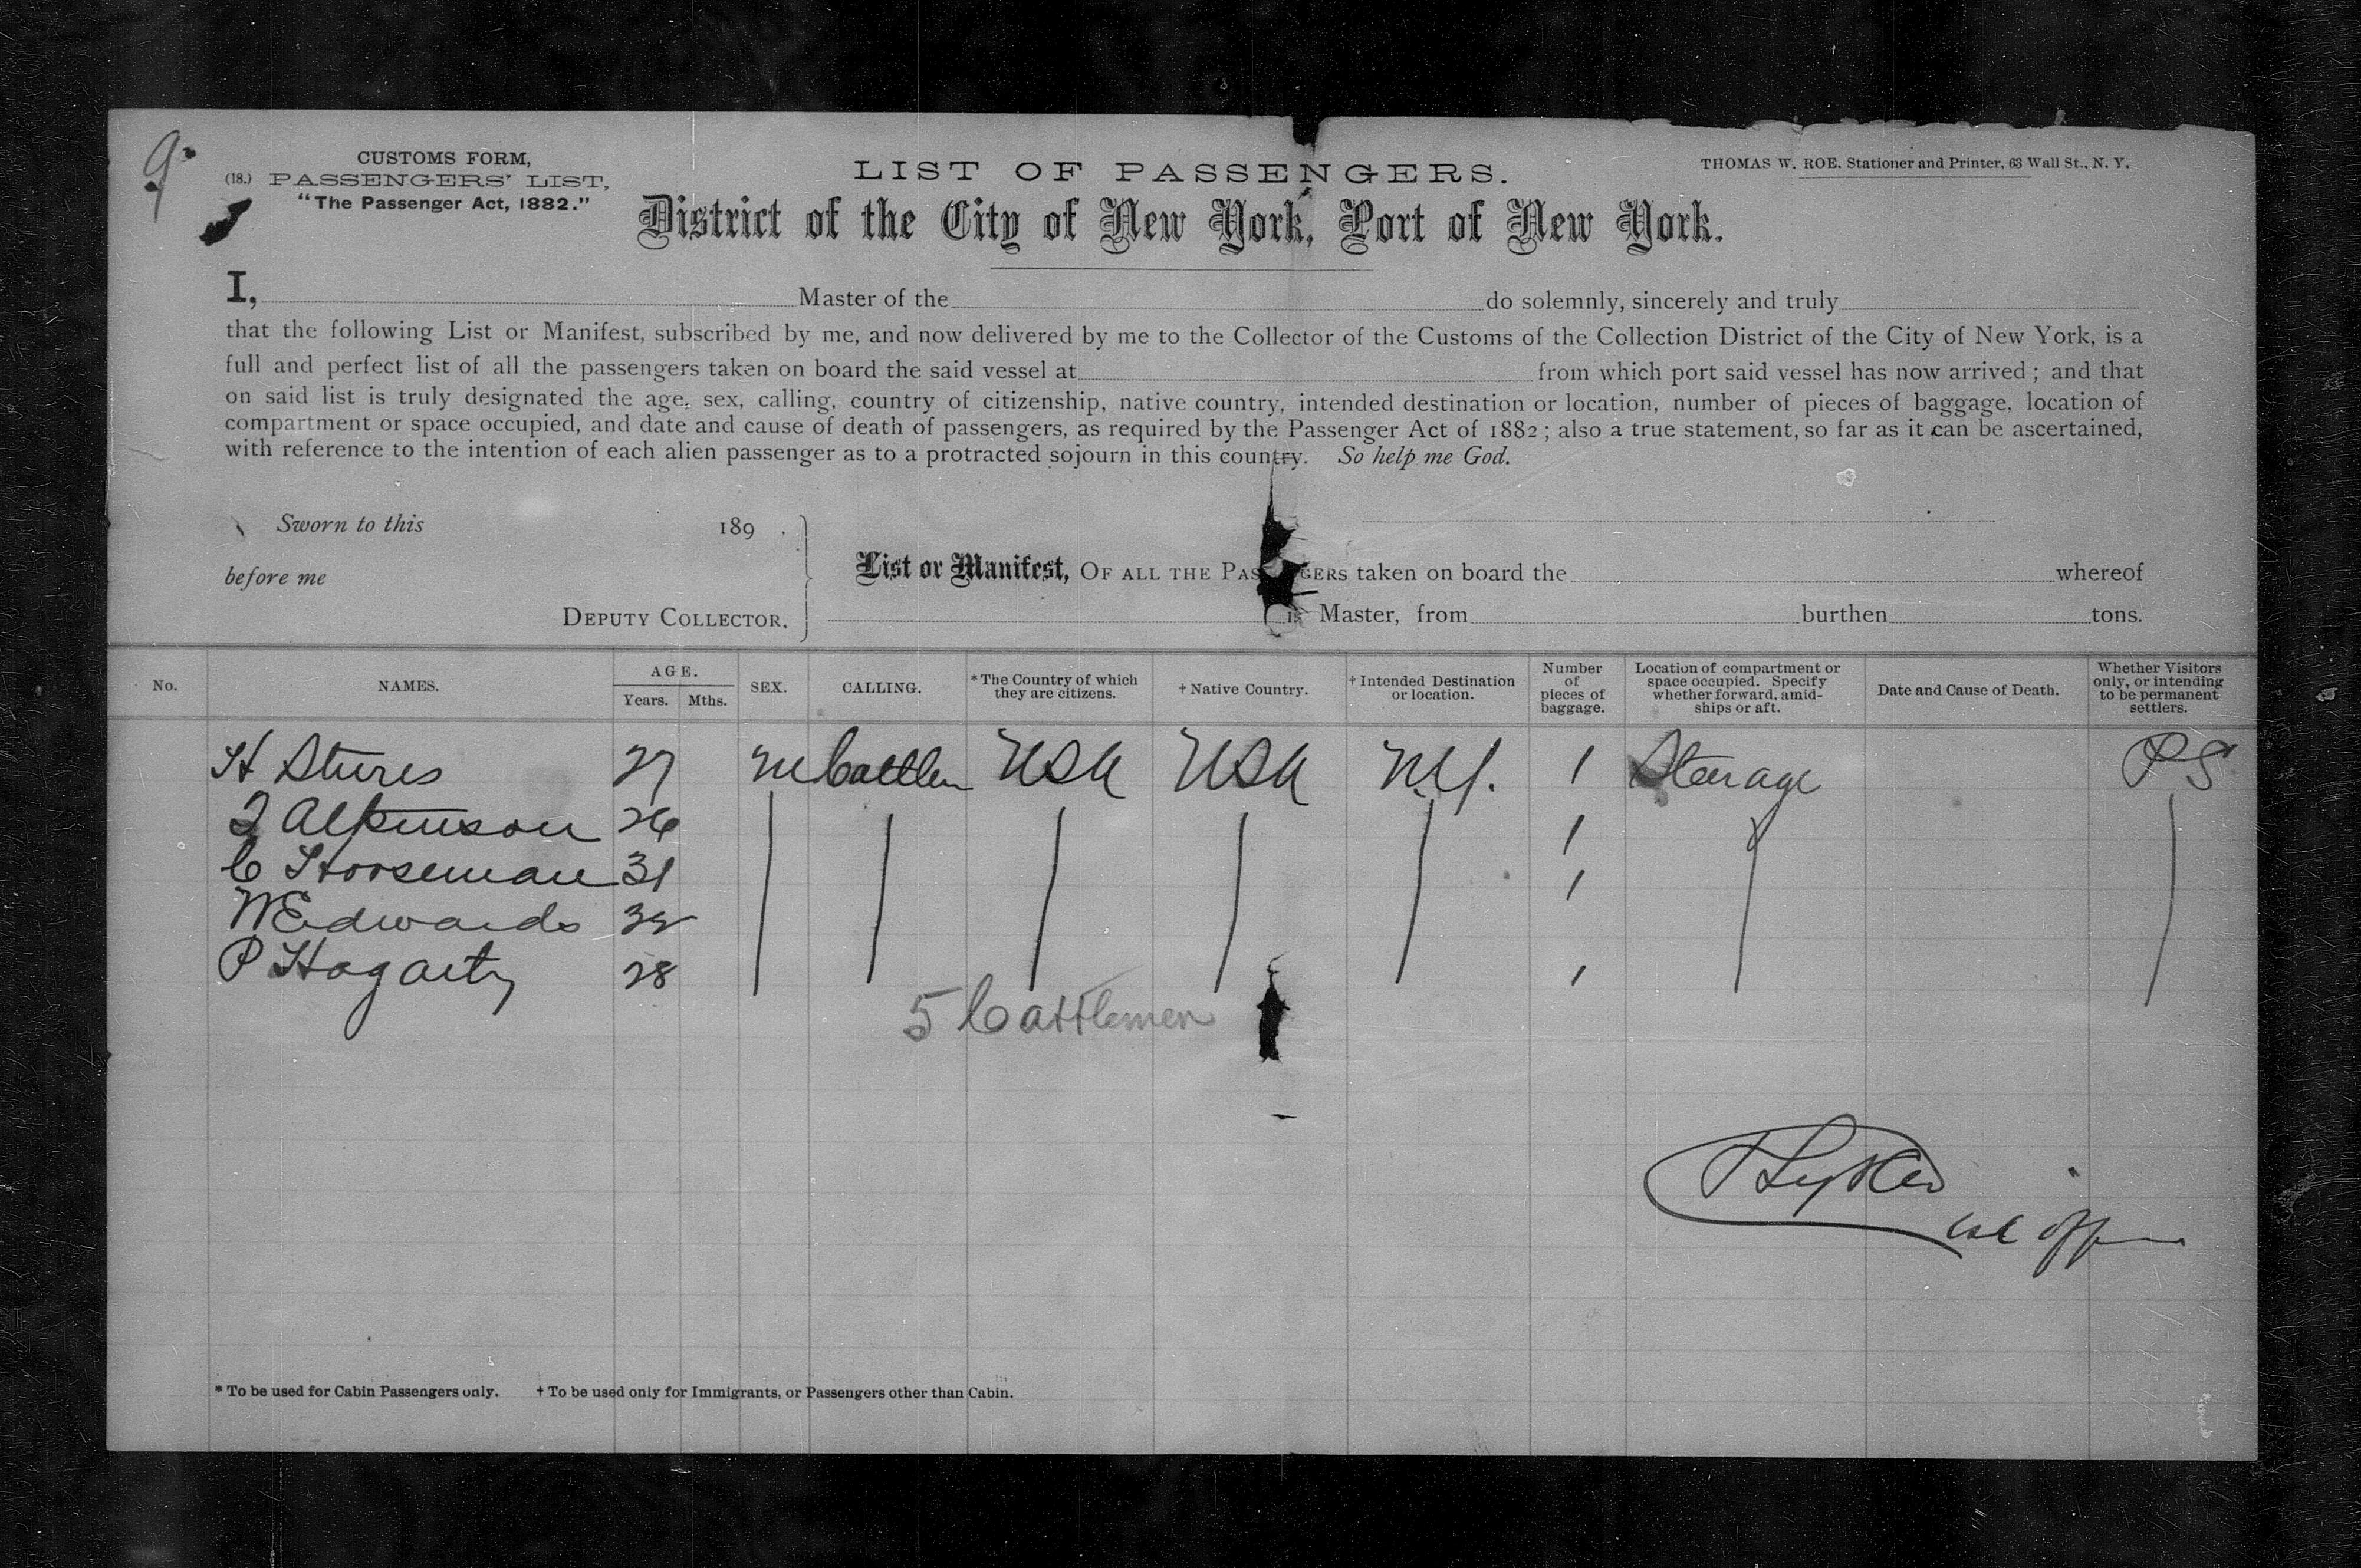 9
CUSTOMS FORM,
(18.) PASSENGERS' LIST,
"The Passenger Act, 1882."
LIST OF PASSENGERS.
THOMAS W. ROE. Stationer and Printer, 63 Wall St., N. Y.
District of the City of New York, Port of New York.
I, Master of the do solemnly, sincerely and truly
that the following List or Manifest, subscribed by me, and now delivered by me to the Collector of the Customs of the Collection District of the City of New York, is a
full and perfect list of all the passengers taken on board the said vessel at from which port said vessel has now arrived; and that
on said list is truly designated the age, sex, calling, country of citizenship, native country, intended destination or location, number of pieces of baggage, location of
compartment or space occupied, and date and cause of death of passengers, as required by the Passenger Act of 1882; also a true statement, so far as it can be ascertained,
with reference to the intention of each alien passenger as to a protracted sojourn in this country. So help me God.
Sworn to this 189 .
before me
DEPUTY COLLECTOR.
List or Manifest, OF ALL THE PAS GERS taken on board the whereof
is Master, from burthen tons.
No. NAMES. AGE. Years. Mths. SEX. CALLING. *The Country of which they are citizens. †Native Country. †Intended Destination or location. Number of pieces of baggage. Location of compartment or space occupied. Specify whether forward, amidships or aft. Date and Cause of Death. Whether Visitors only, or intending to be permanent settlers.
H 27 M USA USA N.Y. 1 Stearage PS
26 1
C Horseman 31 1
W Edwards 32
P Hagarty 28 1
5 Cattlemen
* To be used for Cabin Passengers only. † To be used only for Immigrants, or Passengers other than Cabin.